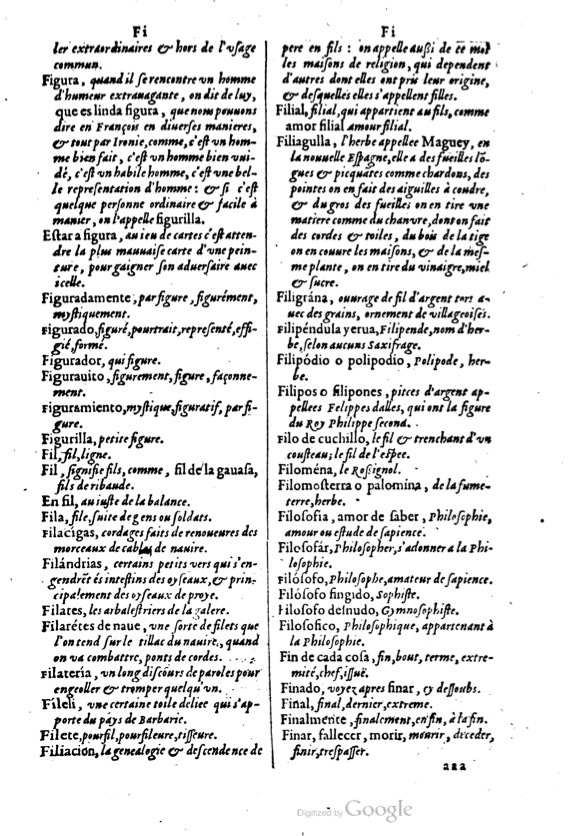 Fi
ler extraordinaires & hors de l'vsage
commun.
Figura, quand il se rencontre vn homme
d'humeur extrauagante, on dit de luy,
que es linda figura, que nous pouuons
dire en François en diuerses manieres,
& tout par Ironie, comme, c'est vn hom-
me bien fait, c'est vn homme bien vui-
dé, c'est vn habile homme, c'est vne bel-
le representation d'homme: & si c'est
quelque personne ordinaire & facile à
manier, on l'appelle figurilla.
Estar a figura, au ieu de cartes c'est atten-
dre la plus mauuaise carte d'vne pein-
ture, pour gaigner son aduersaire auec
icelle.
Figuradamente, par figure, figurément,
mystiquement.
Figurado, figuré, pourtrait, representé, effi-
gié, formé.
Figurador, qui figure.
Figurauito, figurement, figure, façonne-
ment.
Figuramiento, mystique, figuratif, par fi-
gure.
Figurilla, petite figure.
Fil, fil, ligne.
Fil, signifie fils, comme, fil de la gauasa,
fils de ribaude.
En fil, au iuste de la balance.
Fila, file, suite de gens ou soldats.
Filacigas, cordages faits de renoueures des
morceaux de cables de nauire.
Filándrias, certains petits vers qui s'en-
gendrẽt és intestins des oyseaux, & prin-
cipalement des oyseaux de proye.
Filates, les arbalestriers de la galere.
Filarétes de naue, vne sorte de filets que
l'on tend sur le tillac du nauire, quand
on va combattre, ponts de cordes.
Filateria, vn long discours de paroles pour
engeoller & tromper quelqu'vn.
Fíleli, vne certaine toile deliee qui s'ap-
porte du pays de Barbarie.
Filete, pourfil, pourfileure, tissure.
Filiación, la genealogie & descendence de
Fi
pere en fils: on appelle außi de ce mot
les maisons de religion, qui dependent
d'autres dont elles ont pris leur origine,
& desquelles elles s'appellent filles.
Filial, filial, qui appartient au fils, comme
amor filial amour filial.
Filiagulla, l'herbe appellee Maguey, en
la nouuelle Espagne, elle a des fueilles lõ-
gues & picquates comme chardons, des
pointes on en fait des aiguilles à coudre,
& du gros des fueilles on en tire vne
matiere comme du chanvre, dont on fait
des cordes & toiles, du bois de la tige
on en couure les maisons, & de la mes-
me plante, on en tire du vinaigre, miel
& sucre.
Filigrána, ouurage de fil d'argent tors a-
uec des grains, ornement de villageoises.
Filipéndula yerua, Filipende, nom d'her-
be, selon aucuns Saxifrage.
Filipódio o polipodio, Polipode, her-
be.
Filipos o filipones, pieces d'argent ap-
pellees Felippes dalles, qui ont la figure
du Roy Philippe second.
Filo de cuchillo, le fil & trenchant d'vn
cousteau; le fil de l'espee.
Filoména, le Roßignol.
Filomosterra o palomina, de la fume-
terre, herbe.
Filosofia, amor de saber, Philosophie,
amour ou estude de sapience.
Filosofár, Philosopher, s'adonner a la Phi-
losophie.
Filósofo, Philosophe, amateur de sapience.
Filósofo fingido, Sophiste.
Filosofo desnudo, Gymnosophiste.
Filosofico, Philosophique, appartenant à
la Philosophie.
Fin de cada cosa, fin, bout, terme, extre-
mité, chef, issuë.
Finado, voyez apres finar, cy dessoubs.
Final, final, dernier, extreme.
Finalmente, finalement, en fin, à la fin.
Finar, fallecer, morir, mourir, deceder,
finir, trespasser.
aaa
Digitized by Google